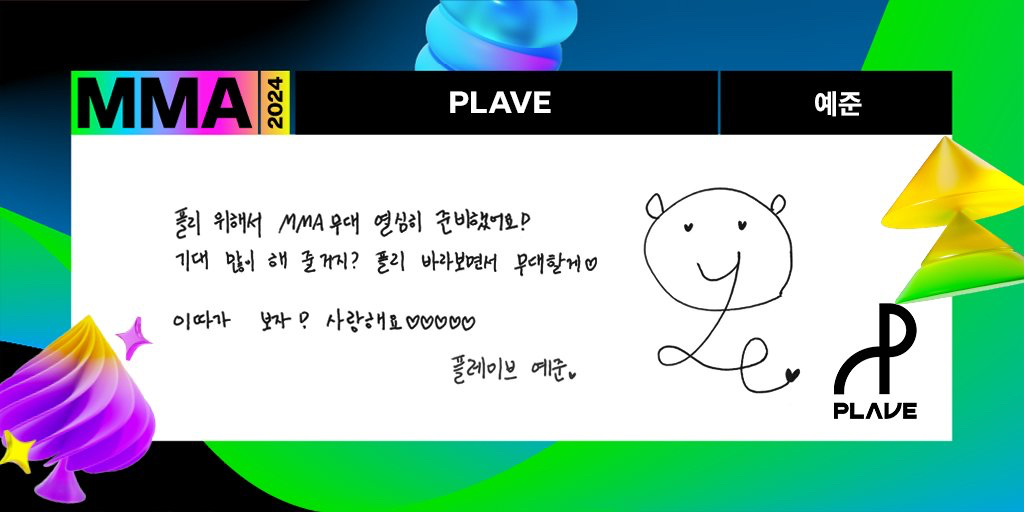 MMA 2024
PLAVE
예준
플리 위해서 MMA 무대 열심히 준비했어요!
기대 많이 해 줄거지? 플리 바라보면서 무대할게♡
이따가 보자! 사랑해요♡♡♡♡♡
플레이브 예준♥
PLAVE